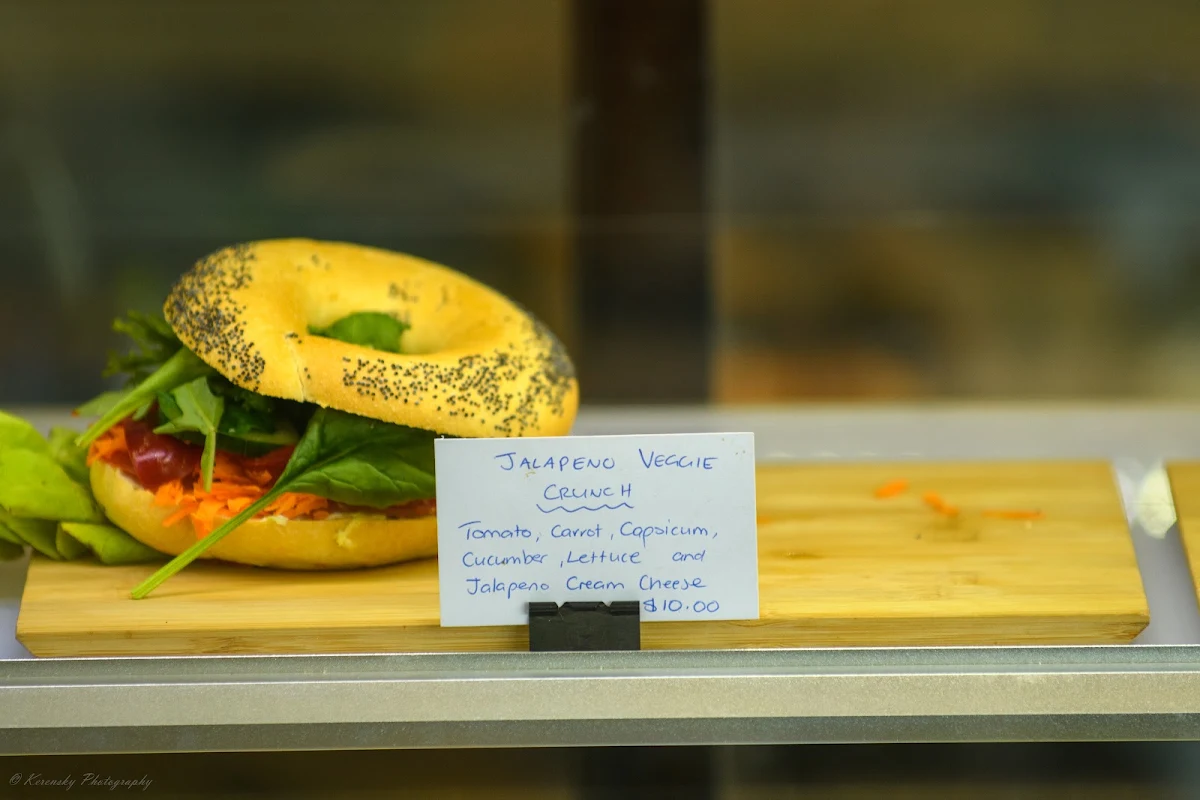 JALAPENO VEGGIE
CRUNCH
Tomato, Carrot, Capsicum,
Cucumber, Lettuce and
Jalapeno Cream Cheese
$10.00
© Kerensky Photography